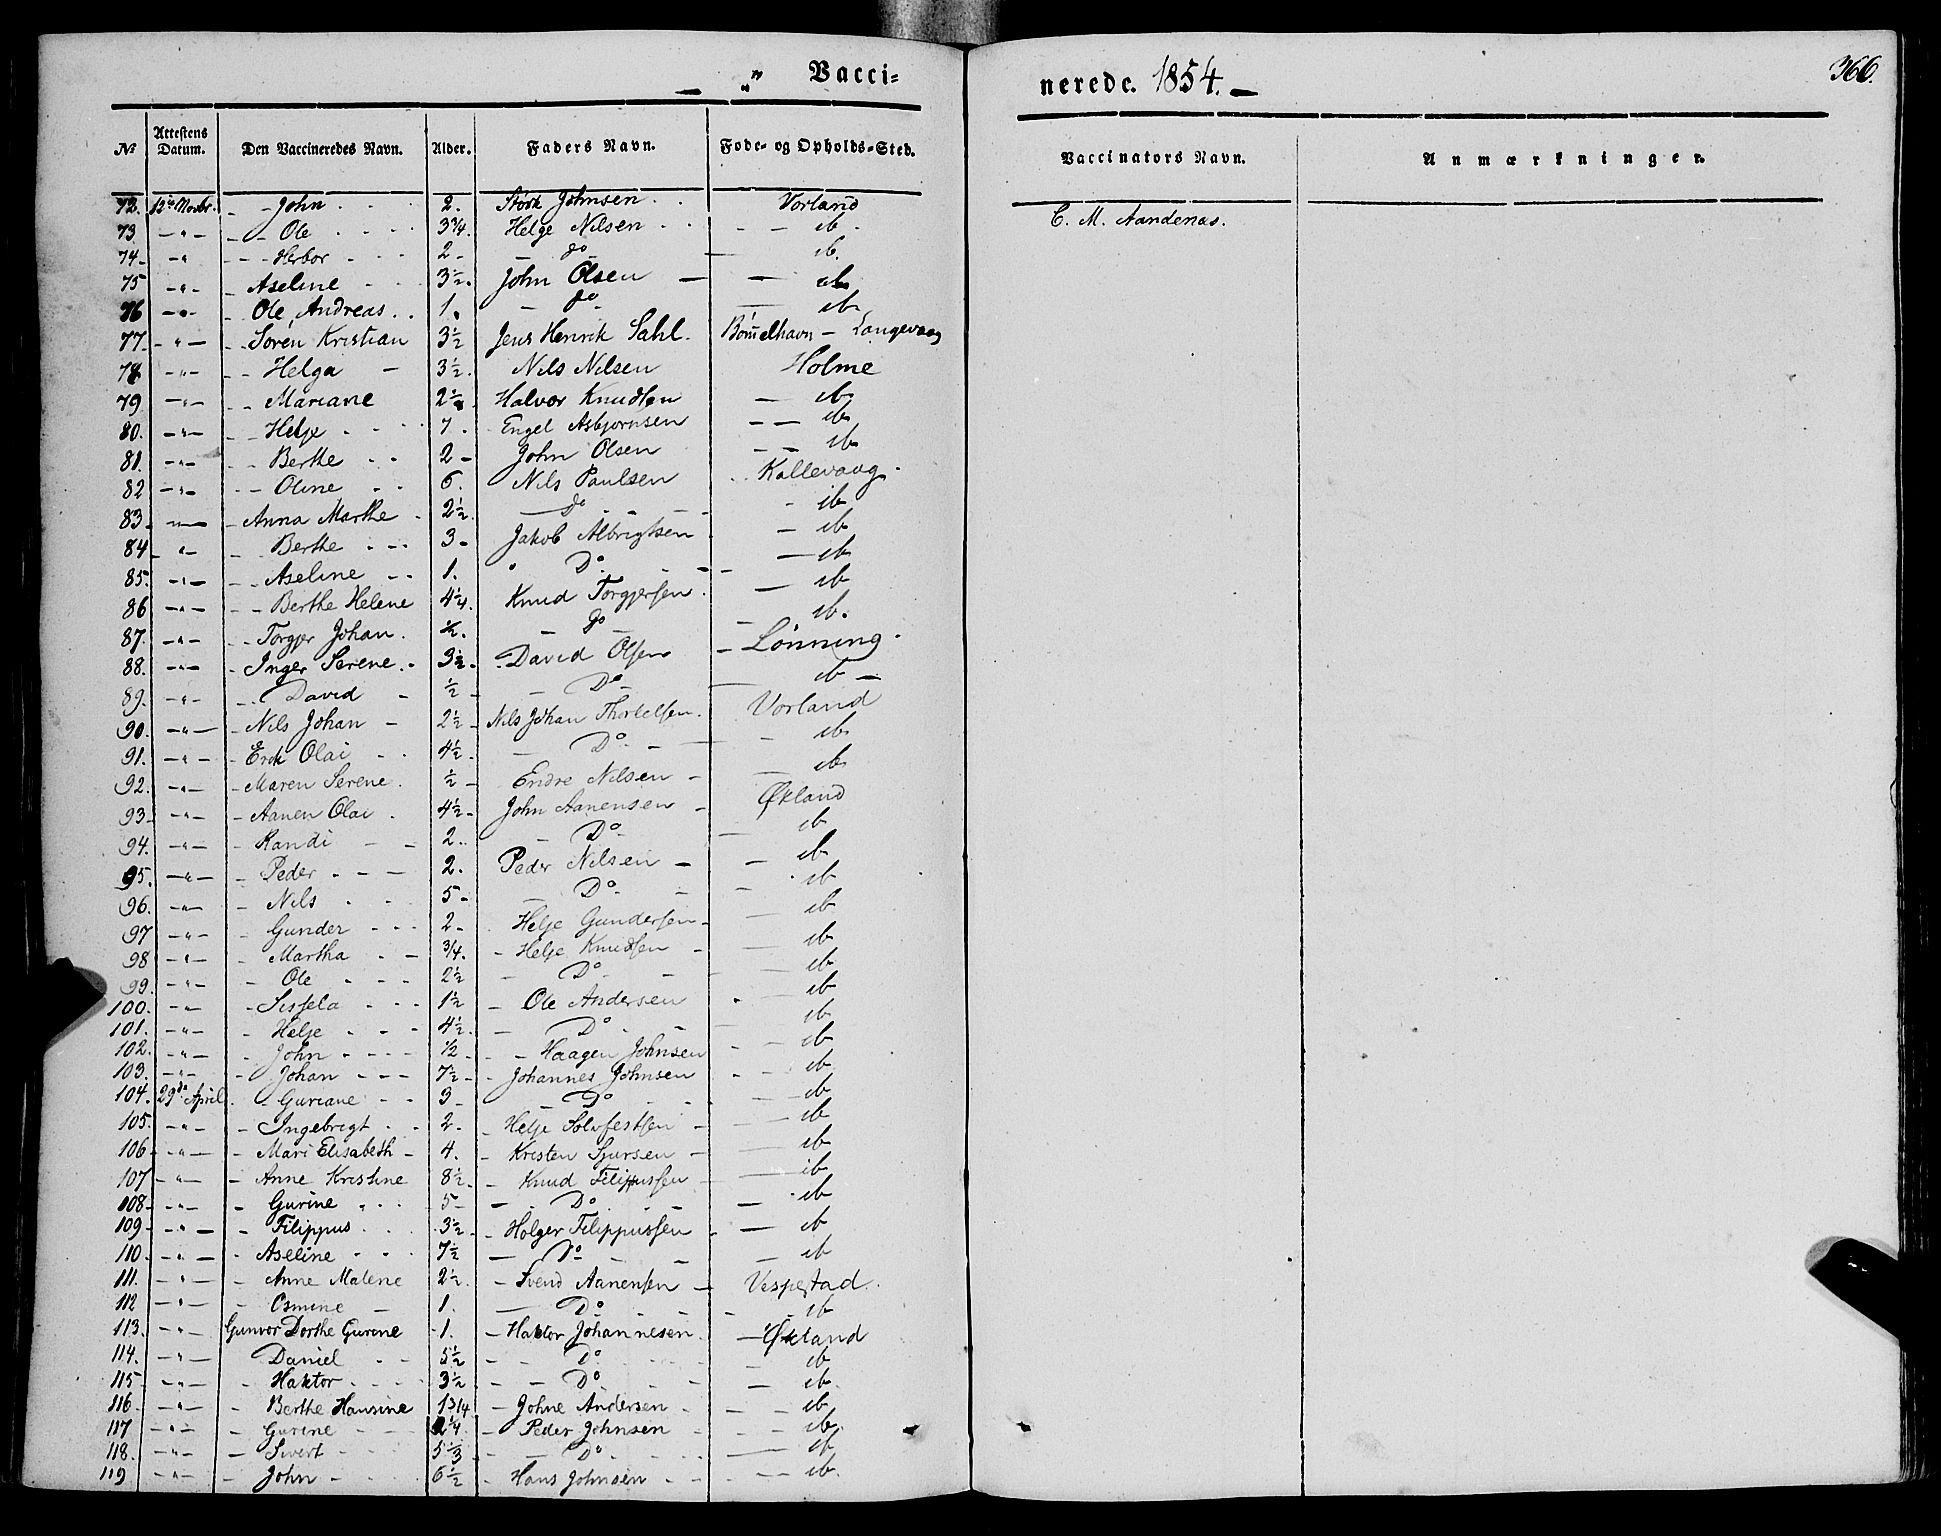 „ Vacci-
nerede. 1854. 366.
No Attestens Datum. Den Vaccineredes Navn. Alder. Faders Navn. Føde- og Opholds-Sted. Vaccinators Navn. Anmærkninger.
72. 12te Novbr. John 2. Størk Johnsen Vorland C. M. Aandenas.
73 - " - Ole 3 3/4. Helge Nilsen ib.
74 - " Herbor 2 - do ib.
75 - " - Aseline 3 1/2. John Olsen ib
76 - " - Ole Andreas 1. do ib
77 - " - Søren Kristian 3 1/2 Jens Henrik Sahl Bømelhavn - Langevaag
78 - " - Helga 3 1/2. Nils Nilsen Holme
79 - " - Mariane 2 1/2 Halvor Knudsen ib
80. - " - Helje 7. Engel Asbjørnsen ib
81. - " - Berthe 2 - John Olsen ib
82 - " - Oline 6. Nils Paulsen Kallevaag
83 - " - Anna Marthe 2 1/2 do ib
84 - " - Berthe 3 - Jakob Albrigtsen ib
85. - " - Aseline 1. Do ib
86 - " - Berthe Helene 4 1/4. Knud Torgjersen ib
87. - " - Torgjer Johan 1/2. do ib.
88. - " - Inger Serene 3 1/2. David Olsen Lønning
89. - " - David 1/2 Do ib
90. - " - Nils Johan 2 1/2 Nils Johan Thorkelsen Vorland
91. - " - Erik Olai 4 1/2. Do ib
92. - " - Maren Serene 1/2 Endre Nilsen ib
93. - " - Aanen Olai 4 1/2 John Aanensen Økland
94. - " - Randi 2. Do ib
95. - " - Peder 2. Peder Nilsen ib
96. - " - Nils 5 - Do ib
97 - " - Gunder 2 - Helje Gundersen ib
98 - " - Martha 3/4. Helje Knudsen ib
99. - " - Ole 2 1/2 Do ib
100. - " - Sissela 1 1/2 Ole Andersen ib
101. - " - Helje 4 1/2. Do ib
102. - " - John 1/2 Haagen Johnsen ib
103. - " - Johan 7 1/2 Johannes Johnsen ib
104. 29de April Guriane 3 Do ib
105. - " - Ingebrigt 2. Helje Solvfestsen ib
106 - " - Mari Elisabeth 4. Kristen Sjursen ib
107 - " - Anne Kristine 8 1/2. Knud Filippussen ib
108 - " - Gurine 5 - Do ib
109 - " - Filippus 3 1/2 Holger Filippussen ib
110. - " - Aseline 7 1/2 Do ib
111. - " - Anne Malene 2 1/2. Svend Aanensen Vespestad.
112 - " - Osmine 1. Do ib
113. - " - Gunvor Dorthe Gurine 1. Haktor Johannesen Økland
114. - " - Daniel 5 1/2 Do ib
115 - " - Haktor 3 1/2 Do ib.
116. - " - Berthe Hansine 1 3/4 Johne Andersen ib
117 - " - Gurine 2 1/4. Peder Johnsen ib.
118. - " - Sivert 5 1/3 Do ib
119 - " - John 6 1/2 Hans Johnsen ib.